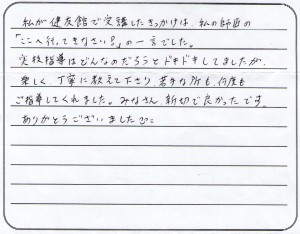 私が健友館で受講したきっかけは、私の師匠の
「ここへ行ってきなさい!」の一言でした。
実技指導はどんなのだろうとドキドキしてましたが、
楽しく丁寧に教えて下さり、苦手な所も、何度も
ご指導してくれました。みなさん、親切で良かったです。
ありがとうございました